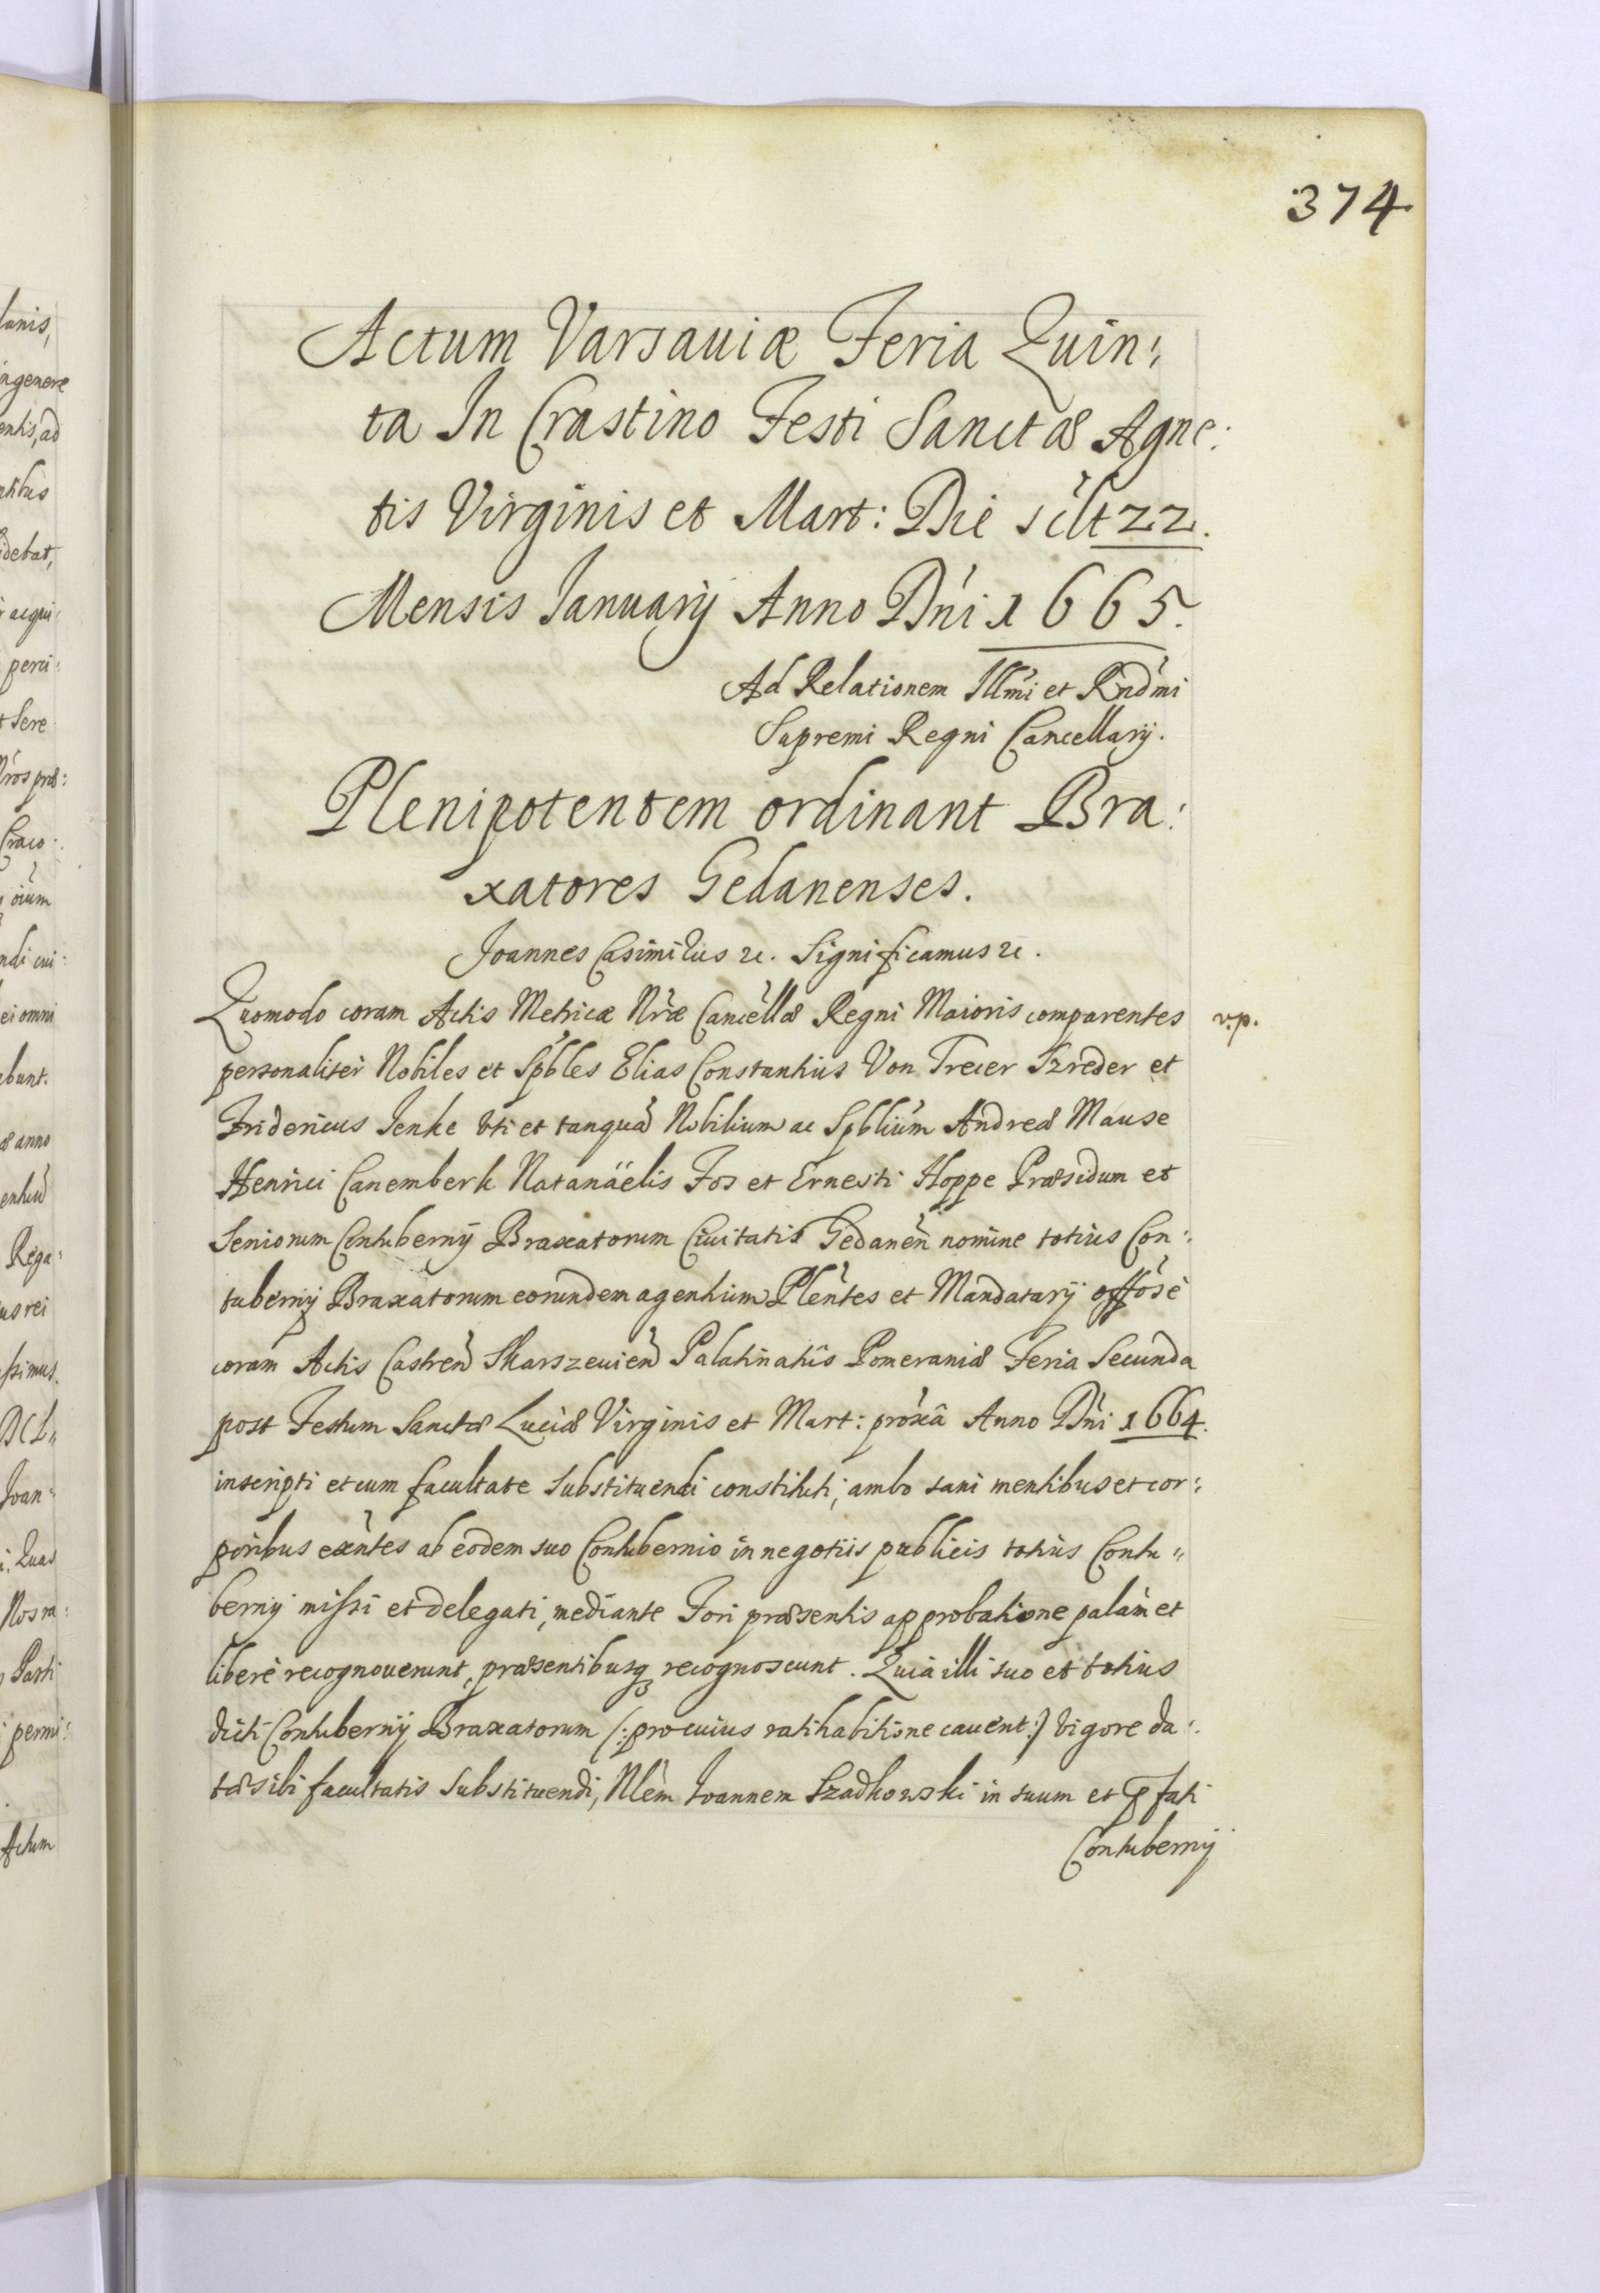 374
Actum Varsauiæ Feria Quin:
ta In Crastino Festi Sanctæ Agne:
tis Virginis et Mart: Die scilt 22.
Mensis Ianuarij Anno Dńi 1665.
Ad Relationem Illm̃i et Rnd̃mi
Supremi Regni Cancellarij.
Plenipotentem ordinant Bra:
xatores Gedanenses.
Joannes Casimirus etc. Significamus etc.
Quomodo coram Actis Metricæ Nr̃æ Cancellæ Regni Maioris comparentes
v.p.
personaliter Nobiles et Spbles Elias Constantius Von Trecer Szreder et
Fridericus Jenke vti et tanquã Nobilium ac Spblium Andreæ Mause
Henrici Canemberk Natanäelis Fos et Ernesti Hoppe Præsidum et
Seniorum Contubernij Braxatorum Ciuitatis Gedaneñ nomine totius Con:
tubernij Braxatorum eorundem agentium Pleñtes et Mandatarij offose
coram Actis Castreñ Skarszeuieñ Palatinatûs Pomeraniæ Feria Secunda
post Festum Sanctæ Luciæ Virginis et Mart: proxã Anno Dńi 1664.
inscripti et cum facultate substituendi constituti, ambo sani mentibus et cor:
poribus exñtes ab eodem suo Contubernio in negotiis publicis totius Contu„
bernij missi et delegati, mediante Fori præsentis approbatione palàm et
liberè recognouerunt, præsentibusq recognoscunt. Quia illi suo et totius
dicti Contubernij Braxatorum (: pro cuius ratihabitione cauent :) vigore da:
tæ sibi facultatis substituendi, Nlem Ioannem Szadkowski in suum et p̃fati
Contubernij